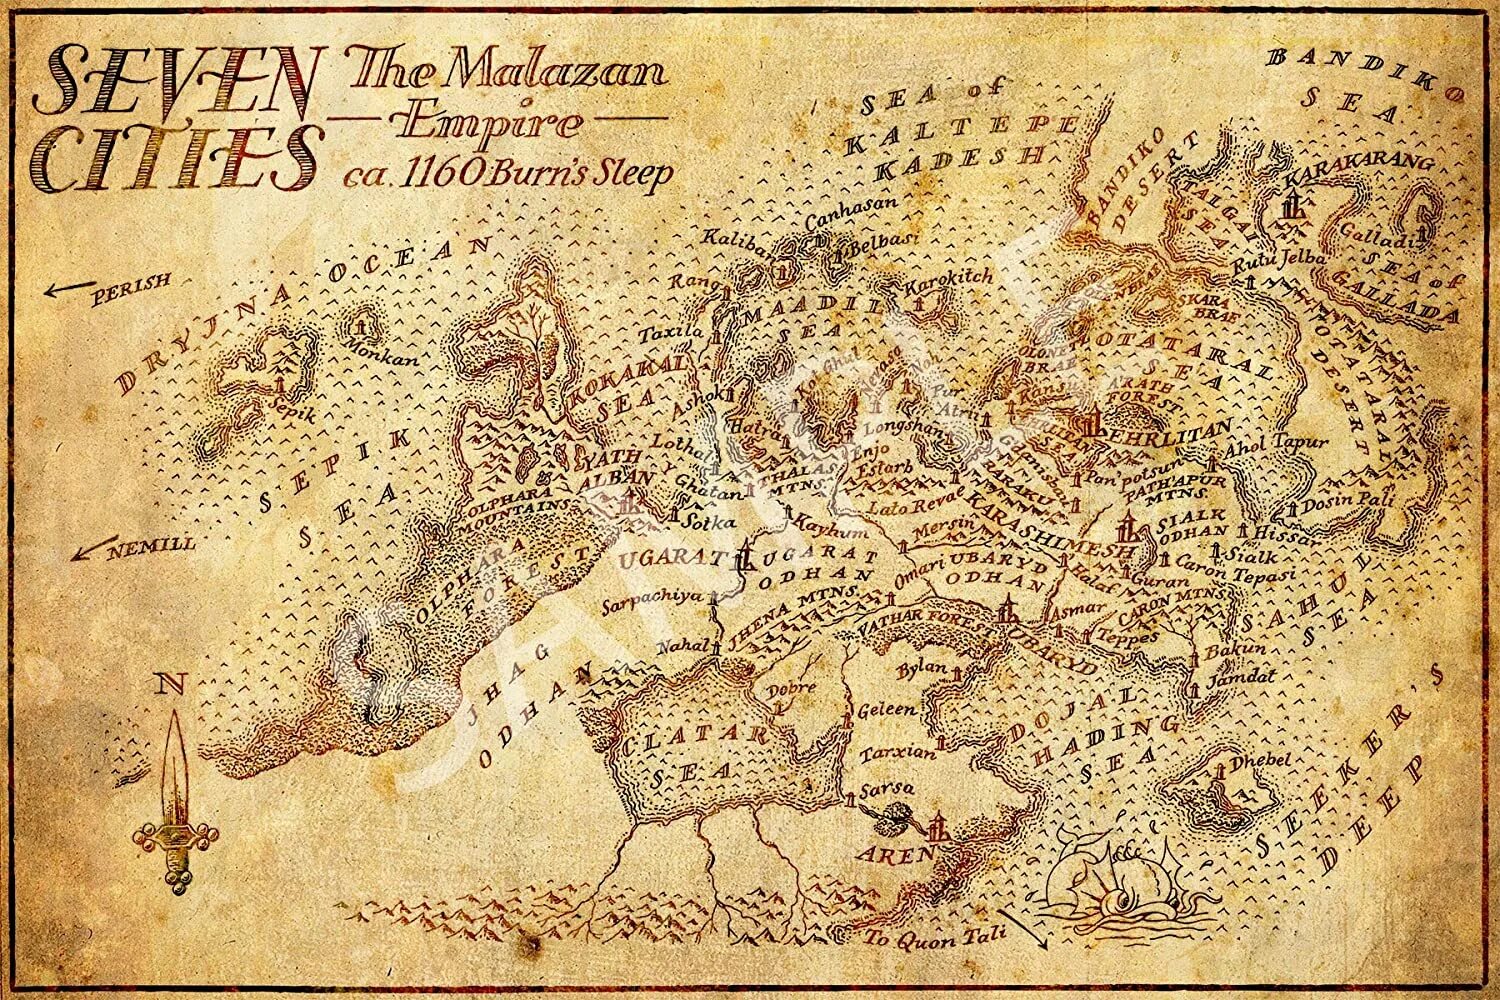 SEVEN
CITIES
The Malazan
Empire
ca. 1160 Burn's Sleep
BANDIKO
SEA
SEA of
KALTEPE
KADESH
BANDIKO
DESERT
TALGAI
SEA
KARAKARANG
Galladi
SEA of
GALLADA
Rutu Jelba
SKARA
BRAE
PERISH
DRYJNA OCEAN
Monkan
Sepik
SEPIK
SEA
NEMILL
Canhasan
Kaliba
Belbasi
Rang
Karokitch
MAADIL
SEA
Taxila
KOKAKAL
SEA
Ashok
Hatra
Lothal
Ghatan
THALAS
MTNS.
Sotka
YATH
ALBAN
OLPHARA
MOUNTAINS
OLPHARA
FOREST
Kol Ghul
Nob
Pur
Atrii
Longshan
Enjo
Estarb
Lato Revae
OTATARAL
SEA
OTATARAL
DESERT
A'RATH
FOREST
EHRLITAN
SEA
EHRLITAN
Ahol Tapur
RARAKU
Pan'potsun
PATH'APUR
MTNS.
Dosin Pali
KARASHIMESH
SIALK
ODHAN
Hissar
Sialk
Caron Tepasi
Guran
Halaf
CARON MTNS.
Mersin
Kayhum
UGARAT
UGARAT
ODHAN
Omari
UBARYD
ODHAN
Sarpachiya
JHENA MTNS.
Nahal
VATHAR FOREST
UBARYD
Asmar
Teppes
Bakun
Jamdat
SAHUL
SEA
JHAG
ODHAN
Bylan
Dobre
Geleen
CLATAR
SEA
Tarxian
DOJAL
HADING
SEA
Sarsa
AREN
Dhebel
SEEKER'S
DEEP
To Quon Tali
N
SAMPLE